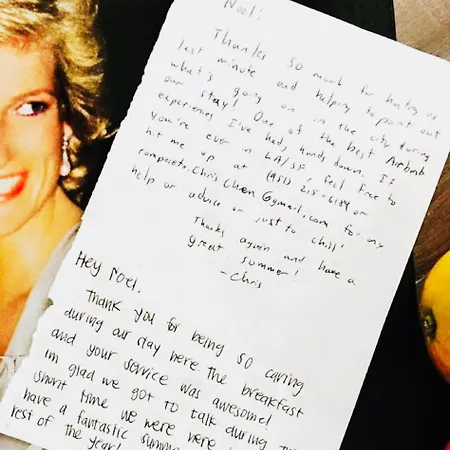 Noel!
Thanks so much for hosting us
last minute and helping to point out
what's going on in the city during
our stay! One of the best Airbnb
experiences I've had, hands down. If
you're ever in LA/SF, feel free to
hit me up at or
for any
help or advice or just to chill!
Thanks again and have a
great summer!
-Chris
Hey Noel!
Thank you for being so caring
during our stay here. the breakfast
and your service was awesome!
im glad we got to talk during the
short time we were here
have a fantastic summer
rest of the year!